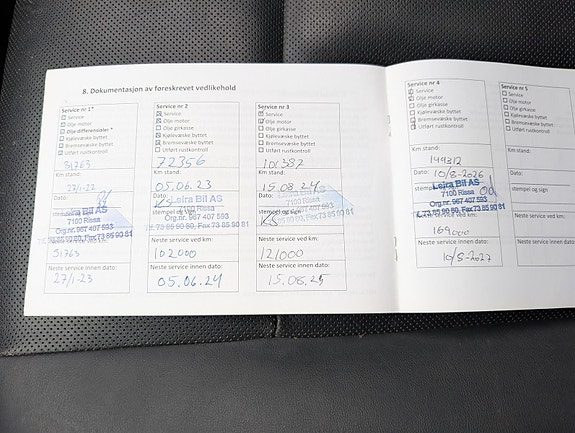 8. Dokumentasjon av foreskrevet vedlikehold
Service nr 1*
Service
Olje motor
Olje differensialer *
Kjølevæske byttet
Bremsevæske byttet
Utført rustkontroll
Km stand:
51763
Dato:
27/1-22
Leira Bil AS
7100 Rissa
Org.nr. 967 407 593
Neste service ved km:
51763
Neste service innen dato:
27/1-23
Service nr 2
Service
Olje motor
Olje girkasse
Kjølevæske byttet
Bremsevæske byttet
Utført rustkontroll
Km stand:
72356
Dato:
05.06.23
Leira Bil AS
7100 Rissa
stempel og sign
KS
Org.nr. 967 407 593
Tlf. 73 85 90 80, Fax 73 85 90 81
Neste service ved km:
102000
Neste service innen dato:
05.06.24
Service nr 3
Service
Olje motor
Olje girkasse
Kjølevæske byttet
Bremsevæske byttet
Utført rustkontroll
Km stand:
101387
Dato:
15.08.24
Leira Bil AS
7100 Rissa
stempel og sign
KS
Org.nr. 967 407 593
Tlf. 73 85 90 80, Fax 73 85 90 81
Neste service ved km:
121000
Neste service innen dato:
15.08.25
Service nr 4
Service
Olje motor
Olje girkasse
Kjølevæske byttet
Bremsevæske byttet
Utført rustkontroll
Km stand:
149312
Dato:
10/8-2026
Leira Bil AS
stempel og sign
7100 Rissa
Org.nr. 967 407 593
Tlf. 73 85 90 80, Fax 73 85 90 81
Neste service ved km:
169000
Neste service innen dato:
10/8-2027
Service nr 5
Service
Olje motor
Olje girkasse
Kjølevæske byttet
Bremsevæske byttet
Utført rustkontroll
Km stand:
Dato:
stempel og sign
Neste service ved km:
Neste service innen dato: